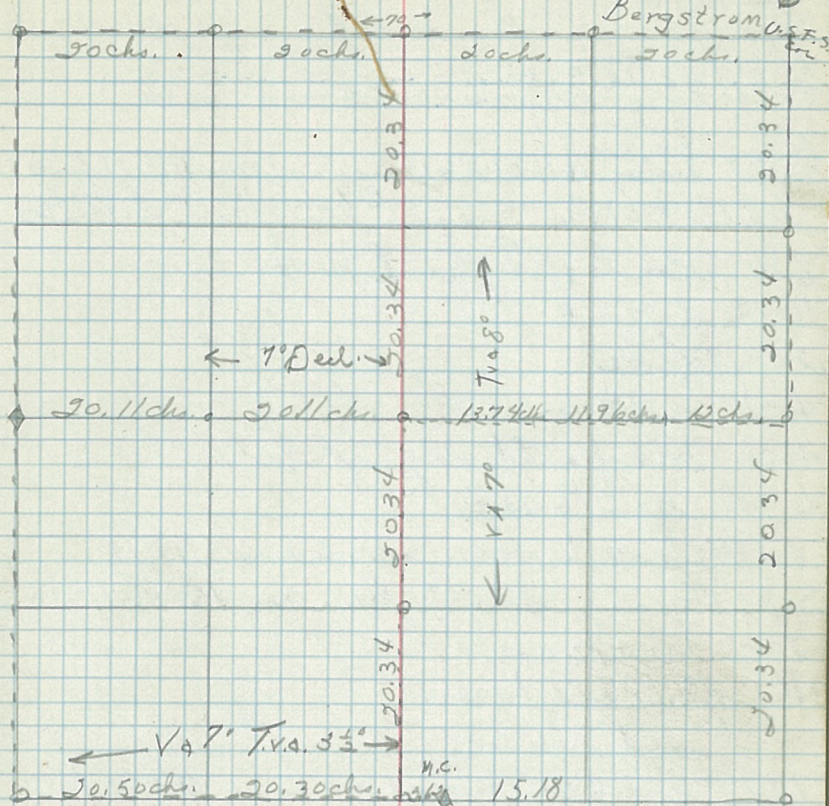 ←70→
Bergstrom
U.S.F.S.
Cor
20chs. 20chs. 20chs. 20chs.
20.34
20.34
20.34
20.34
7° Decl.
T.V.A 8°
20.11chs. 20.11chs. 13.74ch 11.96chs. 12chs.
20.34
VA 7°
20.34
20.34
20.34
VA 7° T.V.A. 3½°
M.C.
20.50chs. 20.30chs. 15.18